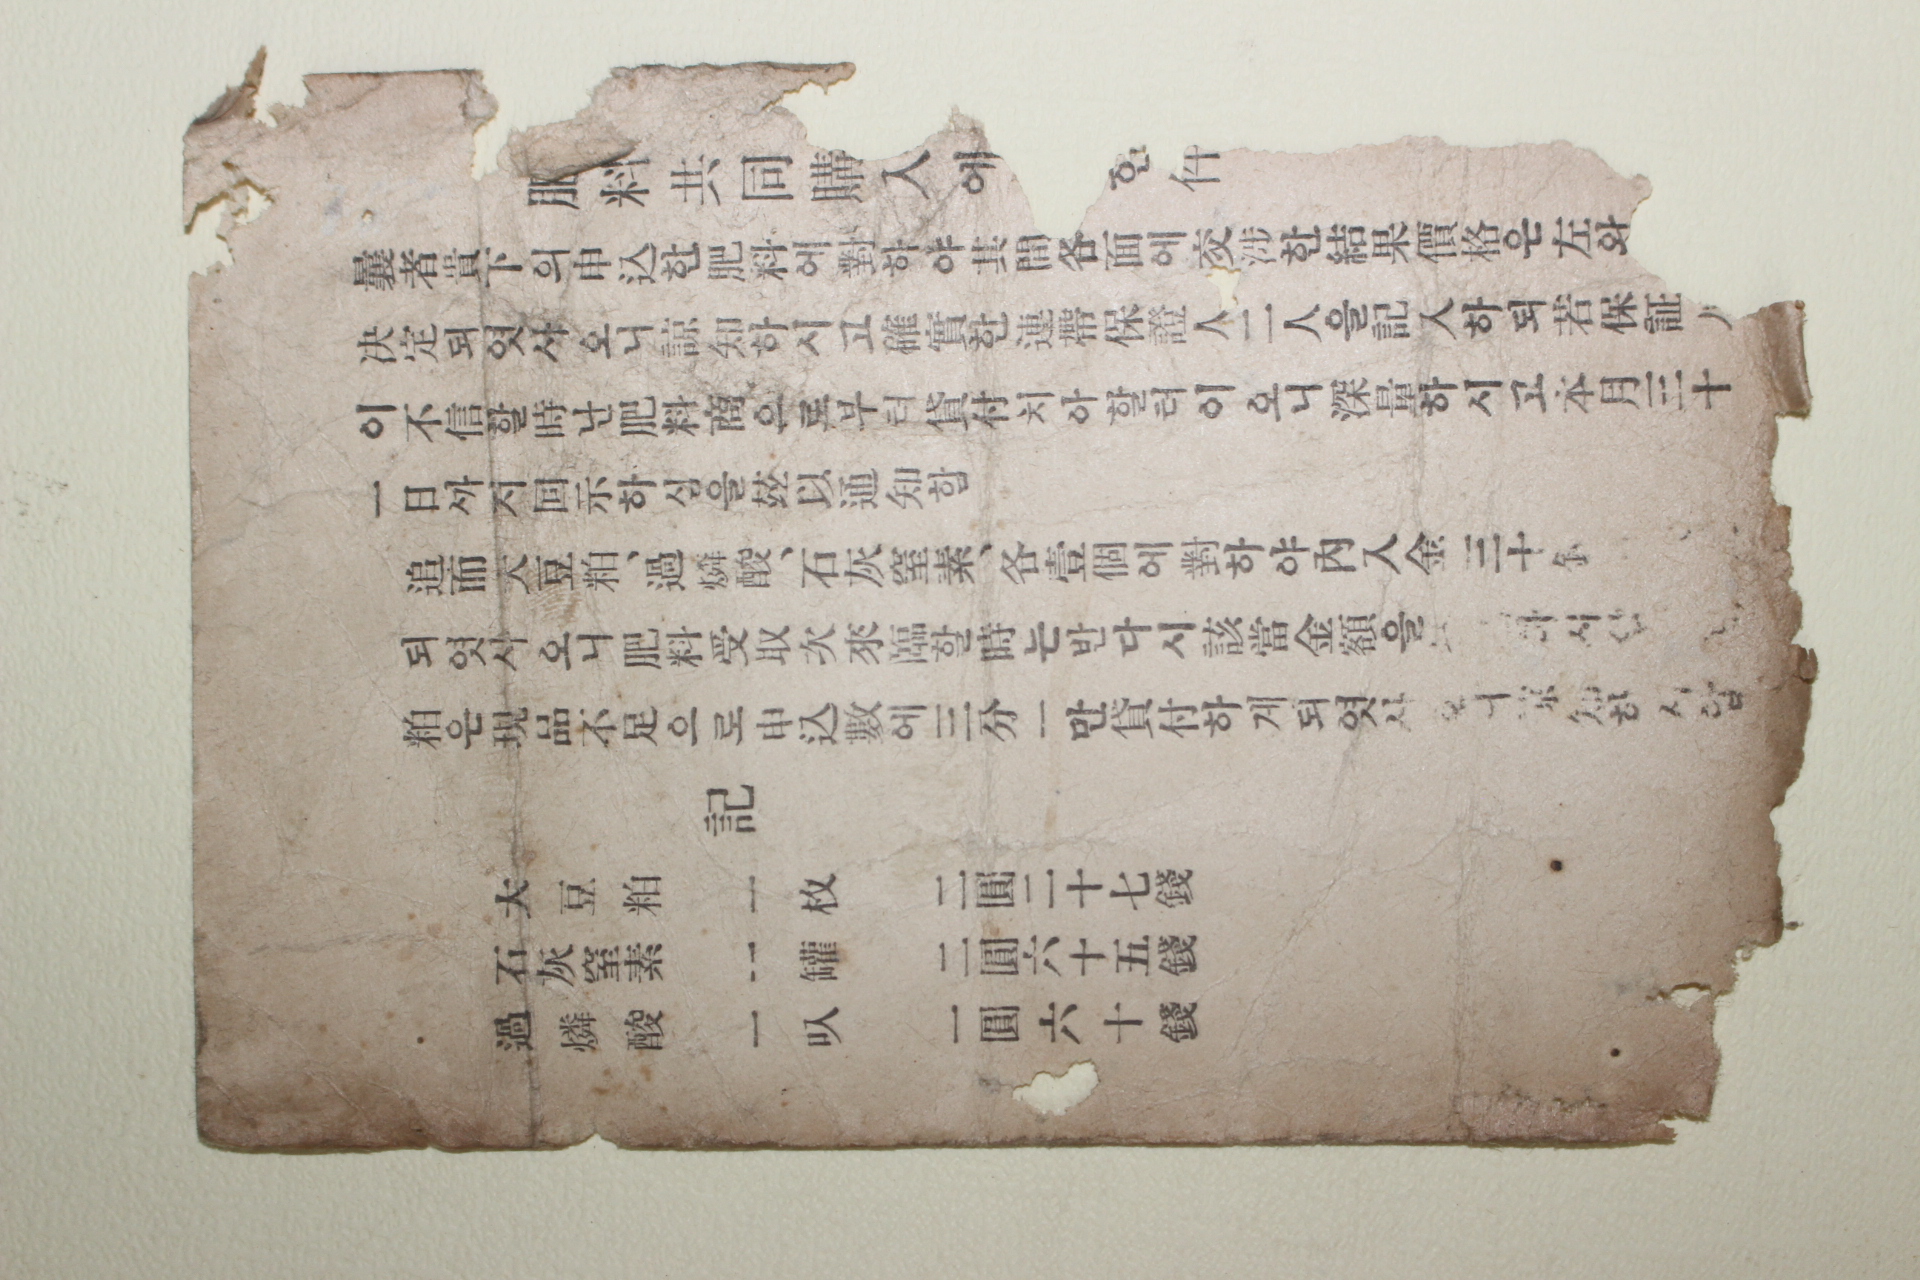 肥料共同購入에 한 件
曩者貴下의申込한肥料에對하야其間各面에交涉한結果價格은左와
決定되엿사오니諒知하시고確實한連帶保證人二人을記入하되若保証人
이不信할時난肥料商으로부터貸付치아할터이오니深量하시고本月三十
一日까지回示하심을玆以通知함
追而大豆粕、過燐酸、石灰窒素、各壹個에對하야內入金三十
되엿사오니肥料受取次來臨할時는반다시該當金額을
粕은現品不足으로申込數에三分一만貸付하게되엿사오니諒知하시압
記
大豆粕 一枚 二圓二十七錢
石灰窒素 一罐 二圓六十五錢
過燐酸 一叺 一圓六十錢